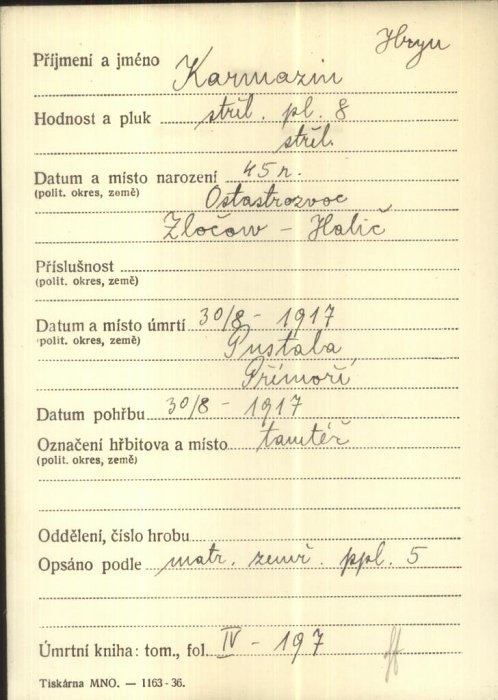 Hryn
Příjmení a jméno Karmazin
Hodnost a pluk střel. pl. 8
střel.
Datum a místo narození 45 r.
(polit. okres, země) Ostastrozvoc
Zločow - Halič
Příslušnost
(polit. okres, země)
Datum a místo úmrtí 30/8 - 1917
(polit. okres, země) Pustala,
Přímoří,
Datum pohřbu 30/8 - 1917
Označení hřbitova a místo tamtéř
(polit. okres, země)
Oddělení, číslo hrobu
Opsáno podle matr. zemř. ppl. 5
Úmrtní kniha: tom., fol. IV - 197
Tiskárna MNO. — 1163-36.